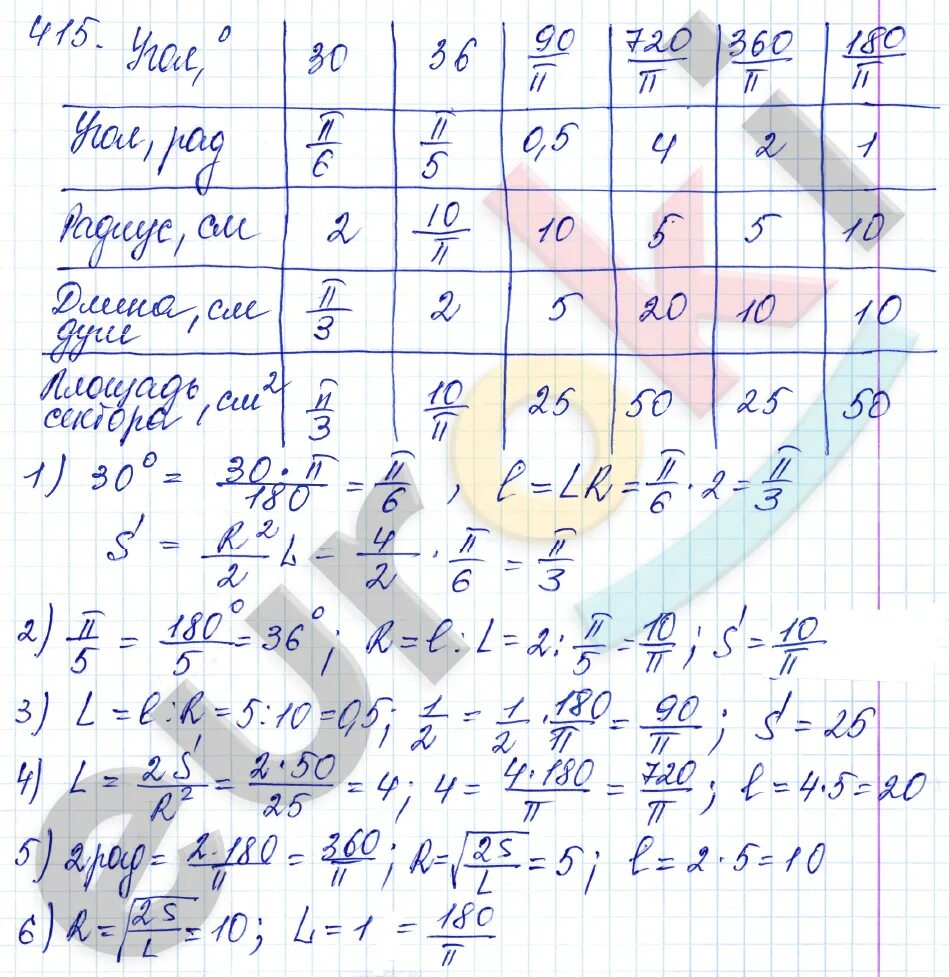 415. Угол,° 30 36 90/π 720/π 360/π 180/π
Угол, рад π/6 π/5 0,5 4 2 1
Радиус, см 2 10/π 10 5 5 10
Длина, см π/3 2 5 20 10 10
дуги
Площадь
сектора, см² π/3 10/π 25 50 25 50
1) 30° = 30·π/180 = π/6, l = LR = π/6 · 2 = π/3
S = R²/2 L = 4/2 · π/6 = π/3
2) π/5 = 180°/5 = 36°; R = l : L = 2 : π/5 = 10/π; S = 10/π
3) L = l : R = 5 : 10 = 0,5; 1/2 = 1/2 · 180/π = 90/π; S = 25
4) L = 2S/R² = 2·50/25 = 4; 4 = 4·180/π = 720/π; l = 4·5 = 20
5) 2 рад = 2·180/π = 360/π; R = √(2S/L) = 5; l = 2·5 = 10
6) R = √(2S/L) = 10; L = 1 = 180/π
euroki